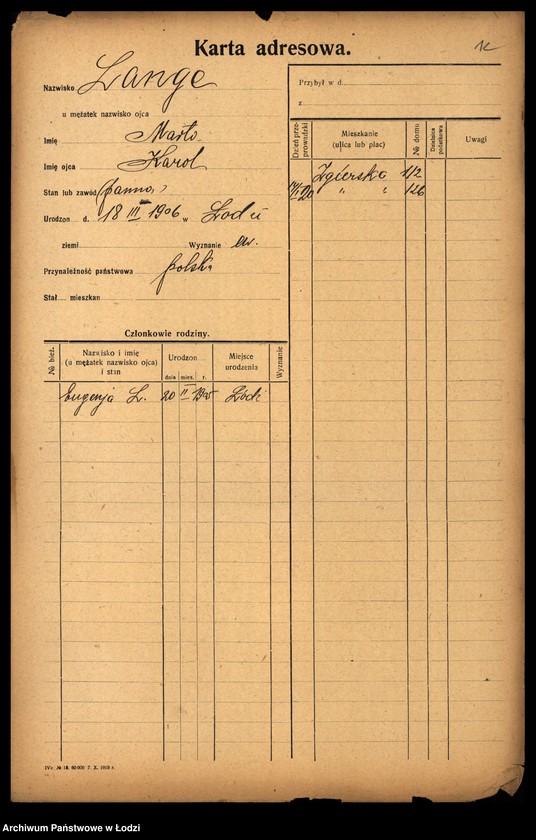 Karta adresowa.
12
Nazwisko Lange
u mężatek nazwisko ojca
Imię Marta
Imię ojca Karol
Stan lub zawód panna
Urodzon d. 18 III 1906 w Łodzi
ziemi Wyznanie ew.
Przynależność państwowa polska
Stał mieszkan
Przybył w d.
z
Dzień przeprowadzki
Mieszkanie
(ulica lub plac)
№ domu
Dzielnica podatkowa
Uwagi
Zgierska 112
20 " " 126
Członkowie rodziny.
№ bież.
Nazwisko i imię
(u mężatek nazwisko ojca)
i stan
Urodzon
dnia mies. r.
Miejsce
urodzenia
Wyznanie
Eugenja L. 20 II 1905 Łódź
IVc. № 18. 60 000 7. X. 1919 r.
Archiwum Państwowe w Łodzi